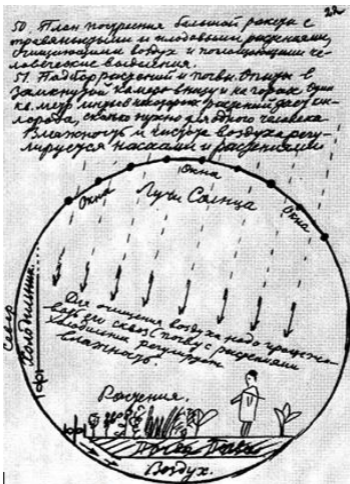 22
50. План построения большой ракеты с
травянистыми и плодовыми растениями,
очищающими воздух и поглощающими че-
ловеческие выделения.
51. Подбор растений и почвы. Опыты в
замкнутой камере внизу и на горах. Одна
кв. метр листвы некоторых растений дает кис-
лорода, сколько нужно для одного человека
Влажность и чистота воздуха регу-
лируется насосами и растениями
Окна
Окна
Лучи Солнца
Окна
Север
Холодильник
Для очищения воздуха надо процежи-
вать его сквозь почву с растениями
Холодильник регулирует
влажность.
Растения.
Почва Почва
Воздух.